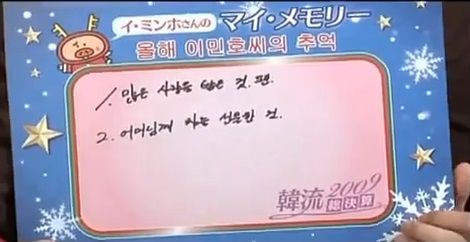 イ・ミンホさんの マイ・メモリー
올해 이민호씨의 추억
1. 많은 사랑을 받은 것.
2. 어머님께 차를 선물한 것.
韓流2009
総決算